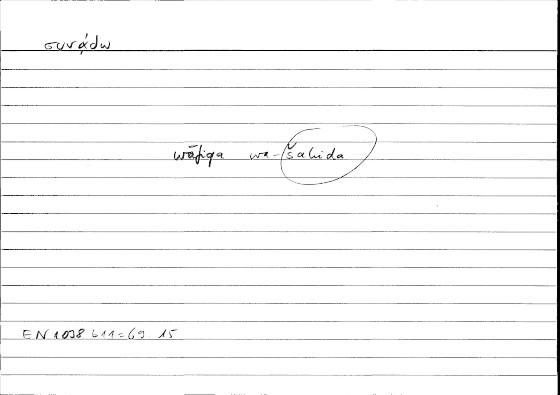 συνᾴδω
wāfiqa wa-šahida
EN 1098 b11=69 15